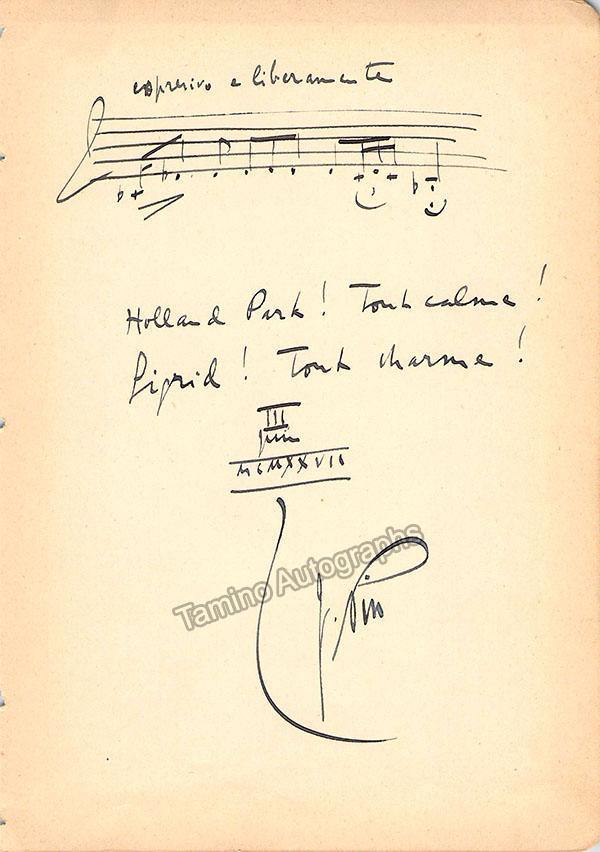 espresivo e liberamente
Holland Park! Tout calme!
Sigrid! Tout charme!
III
juin
MCMXXVII
Tamino Autographs